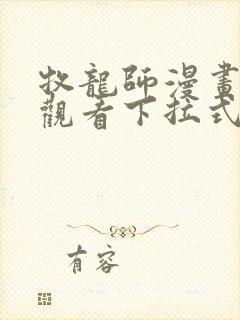 牧龍師漫畫
觀看下拉式
有容